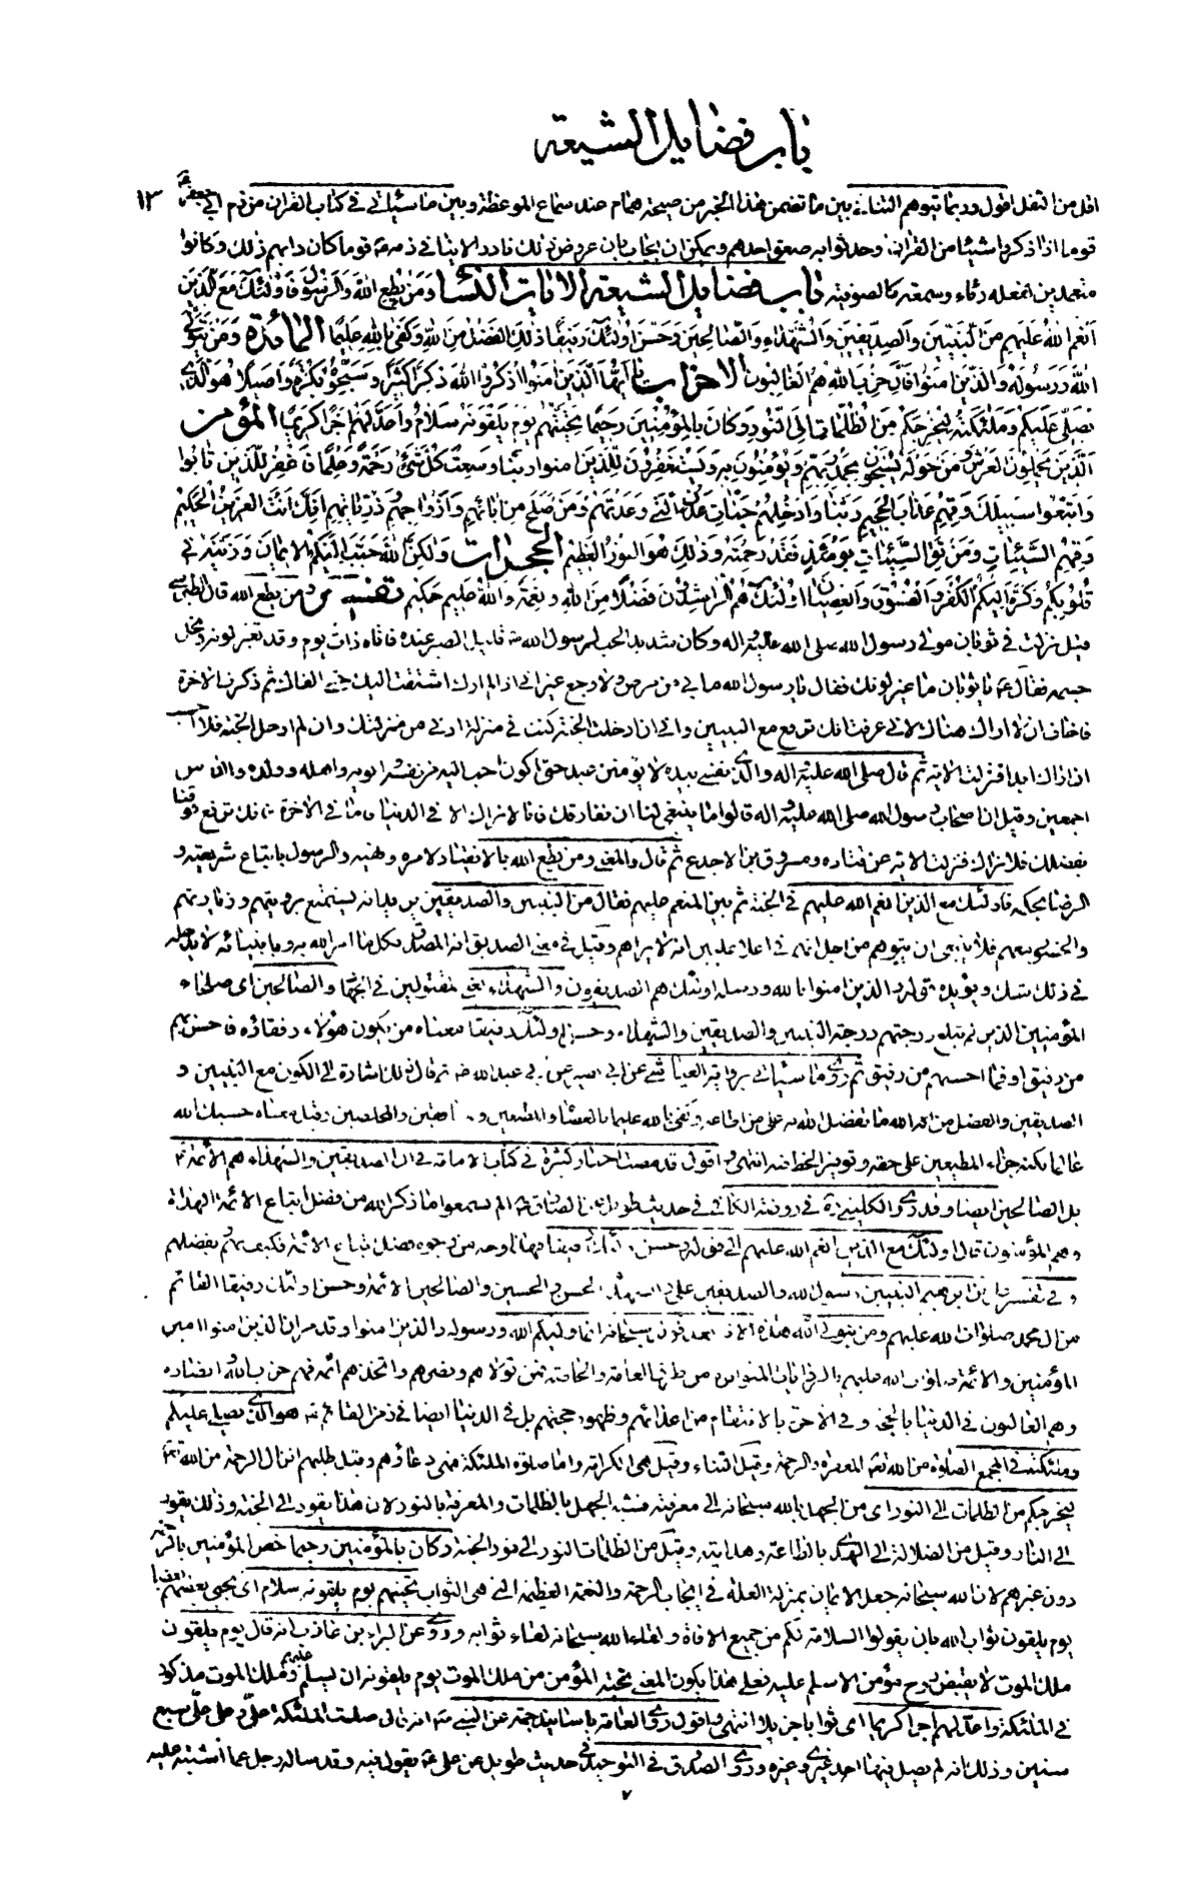 باب فضايل الشيعة
١٣
اقل من النقل اقول وربما يتوهم التنافي بين ما تضمن هذا الخبر من صيحة همام عند سماع الموعظة وبين ما سيأتي في كتاب القران من ذم ابي جعفر ع
قوما اذا ذكروا شيئا من القران وحدثوا به صعق احدهم ويمكن ان يجاب بان عروض ذلك نادرا لا ينافي ذمه ع قوما كان دابهم ذلك وكانوا
متعمدين لفعله رئاء وسمعة كالصوفية باب فضايل الشيعة الايات النسا ومن يطع الله والرسول فاولئك مع الذين
انعم الله عليهم من النبيين والصديقين والشهداء والصالحين وحسن اولئك رفيقا ذلك الفضل من الله وكفى بالله عليما المائدة ومن يتول
الله ورسوله والذين امنوا فان حزب الله هم الغالبون الاحزاب يا ايها الذين امنوا اذكروا الله ذكرا كثيرا وسبحوه بكرة واصيلا هو الذي
يصلي عليكم وملئكته ليخرجكم من الظلمات الى النور وكان بالمؤمنين رحيما تحيتهم يوم يلقونه سلام واعد لهم اجرا كريما المؤمن
الذين يحملون العرش ومن حوله يسبحون بحمد ربهم ويؤمنون به ويستغفرون للذين امنوا ربنا وسعت كل شئ رحمة وعلما فاغفر للذين تابوا
واتبعوا سبيلك وقهم عذاب الجحيم ربنا وادخلهم جنات عدن التي وعدتهم ومن صلح من ابائهم وازواجهم وذرياتهم انك انت العزيز الحكيم
وقهم السيئات ومن تق السيئات يومئذ فقد رحمته وذلك هو الفوز العظيم الحجرات ولكن الله حبب اليكم الايمان وزينه في
قلوبكم وكره اليكم الكفر والفسوق والعصيان اولئك هم الراشدون فضلا من الله ونعمة والله عليم حكيم تفسير ومن يطع الله قال الطبرسي
قيل نزلت في ثوبان مولى رسول الله صلى الله عليه واله وكان شديد الحب لرسول الله ص قليل الصبر عنه فاتاه ذات يوم وقد تغير لونه ونحل
جسمه فقال ع يا ثوبان ما غير لونك فقال يا رسول الله ما بي من مرض ولا وجع غير اني اذا لم ارك اشتقت اليك حتى القاك ثم ذكرت الاخرة
فاخاف ان لا اراك هناك لاني عرفت انك ترفع مع النبيين واني ان ادخلت الجنة كنت في منزلة ادنى من منزلتك وان لم ادخل الجنة فلا احسب
ان اراك ابدا فنزلت الاية ثم قال صلى الله عليه واله والذي نفسي بيده لا يؤمنن عبد حتى اكون احب اليه من نفسه وابويه واهله وولده والناس
اجمعين وقيل ان اصحاب رسول الله صلى الله عليه واله قالوا ما ينبغي لنا ان نفارقك فانا لا نراك الا في الدنيا فاما في الاخرة فانك ترفع فوقنا
بفضلك فلا نراك فنزلت الاية عن قتادة ومسروق بن الاجدع ثم قال والمعنى ومن يطع الله بالانقياد لامره ونهيه والرسول باتباع شريعته و
الرضا بحكمه فاولئك مع الذين انعم الله عليهم في الجنة ثم بين المنعم عليهم فقال من النبيين والصديقين يريد انه يستمتع برؤيتهم وزيارتهم
والحضور معهم فلا ينبغي ان يتوهم من اجل انهم في اعلا عليين انه لا يراهم وقيل في معنى الصديق انه المصدق بكل ما امر الله به وبانبيائه لا يدخله
في ذلك شك ويؤيده قوله والذين امنوا بالله ورسله اولئك هم الصديقون والشهداء يعني المقتولين في الجهاد والصالحين اي صلحاء
المؤمنين الذين لم تبلغ درجتهم درجة النبيين والصديقين والشهداء وحسن اولئك رفيقا معناه من يكون هؤلاء رفقاؤه فاحسن بهم
من رفيق او فما احسنهم من رفيق ثم روى ما سيأتي برواية العياشي عن ابي بصير عن ابي عبد الله ع ثم قال ذلك اشارة الى الكون مع النبيين و
الصديقين والفضل من الله ما تفضل الله به على من اطاعه وكفى بالله عليما بالعصاة والمطيعين والمنافقين والمخلصين وقيل معناه حسبك الله
عالما بكنه جزاء المطيعين على حقه وتوفير الحظ فيه انتهى واقول قد مضت اخبار كثيرة في كتاب الامامة في ان الصديقين والشهداء هم الائمة ع
بل الصالحين ايضا وقد روى الكليني ره في روضة الكافي في حديث طويل عن الصادق ع الم تسمعوا ما ذكر الله من فضل اتباع الائمة الهداة
وهم المؤمنون قال اولئك مع الذين انعم الله عليهم الى قوله وحسن اولئك رفيقا فهذا وجه من وجوه فضل اتباع الائمة فكيف بهم بفضلهم
وفي تفسير علي بن ابرهيم النبيين رسول الله والصديقين علي والشهداء الحسن والحسين والصالحين الائمة وحسن اولئك رفيقا القائم
من ال محمد صلوات الله عليهم ومن يتولى الله هذه الاية بعد قوله سبحانه انما وليكم الله ورسوله والذين امنوا وقد مر ان الذين امنوا امير
المؤمنين والائمة صلوات الله عليهم بالروايات المتواترة من طرق العامة والخاصة فمن تولاهم ونصرهم واتخذهم ائمة فهم حزب الله وانصاره
وهم الغالبون في الدنيا بالحجة وفي الاخرة بالانتقام من اعدائهم وظهور حجتهم بل في الدنيا ايضا في زمن القائم ع هو الذي يصلي عليكم
وملئكته في المجمع الصلوة من الله تع المغفرة والرحمة وقيل الثناء وقيل هي الكرامة واما صلوة الملئكة فهي دعاؤهم وقيل طلبهم انزال الرحمة من الله تعالى
ليخرجكم من الظلمات الى النور اي من الجهل بالله سبحانه الى معرفته فشبه الجهل بالظلمات والمعرفة بالنور لان هذا يقود الى الجنة وذلك يقود
الى النار وقيل من الضلالة الى الهدى بالطافه وهدايته وقيل من ظلمات النور الى نور الجنة وكان بالمؤمنين رحيما خص المؤمنين بالرحمة
دون غيرهم لان الله سبحانه جعل الايمان بمنزلة العلة في ايجاب الرحمة والنعمة العظيمة التي هي الثواب تحيتهم يوم يلقونه سلام اي يحيي بعضهم بعضا
يوم يلقون ثواب الله بان يقولوا السلامة لكم من جميع الافات ولقاء الله سبحانه لقاء ثوابه وروي عن البراء بن عازب انه قال يوم يلقون
ملك الموت لا يقبض روح مؤمن الا سلم عليه فعلى هذا يكون المعنى تحية المؤمن من ملك الموت يوم يلقونه ان يسلم عليهم وملك الموت مذكور
في الملئكة واعد لهم اجرا كريما اي ثوابا جزيلا انتهى واقول روى العامة باسانيد جمة عن النبي ص انه قال صلت الملئكة علي وعلى علي سبع
سنين وذلك انه لم يصل فيها احد غيري وغيره وروى الصدوق في التوحيد في حديث طويل عن علي ع يقول فيه وقد ساله رجل عما اشتبه عليه
٧